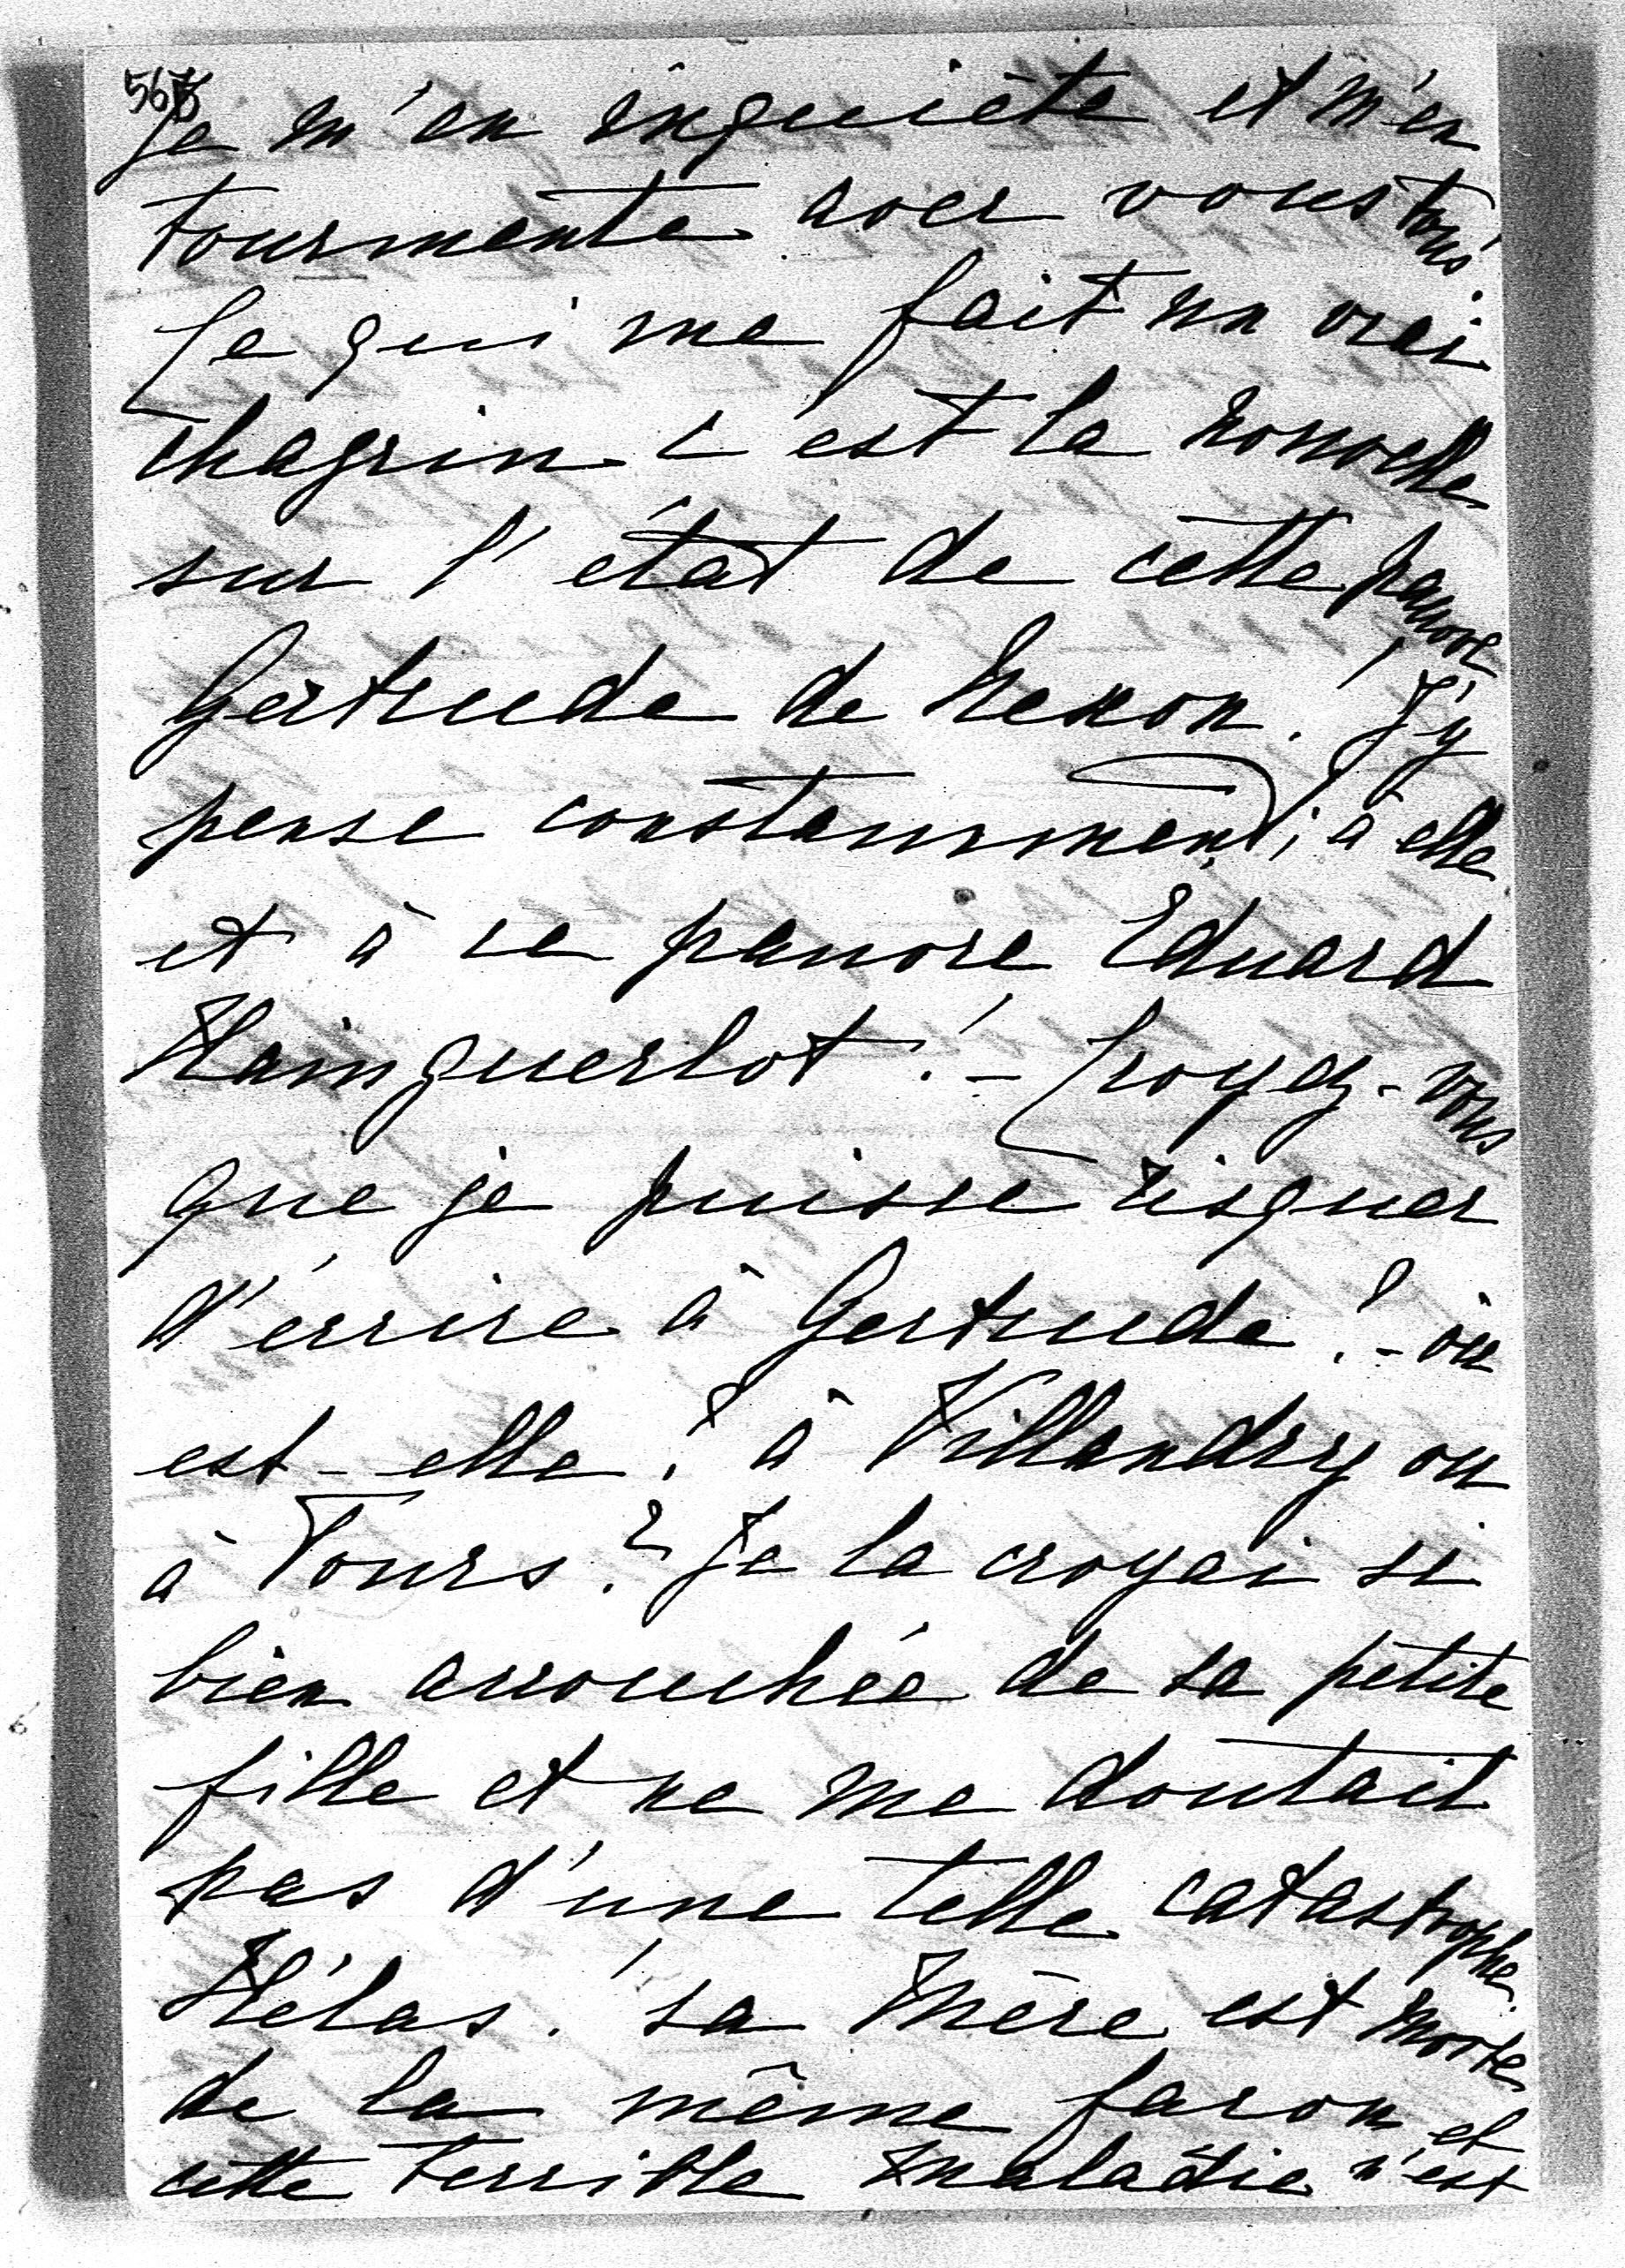 567
Je m'en inquiète et m'en
tourmente avec vous tous.
Ce qui me fait un vrai
chagrin c'est la nouvelle
sur l'état de cette pauvre
Gertrude de Nexon! J'y
pense constamment; à elle
et à ce pauvre Eduard
Hainguerlot! - Croyez-vous
que je puisse risquer
d'ecrire à Gertrude? - où
est-elle? à Villandry ou
à Tours? Je la croyai si
bien accouchée de sa petite
fille et ne me doutait
pas d'une telle catastrophe.
Hélas! sa mère est morte
de la même facon et
cette terrible maladie n'est